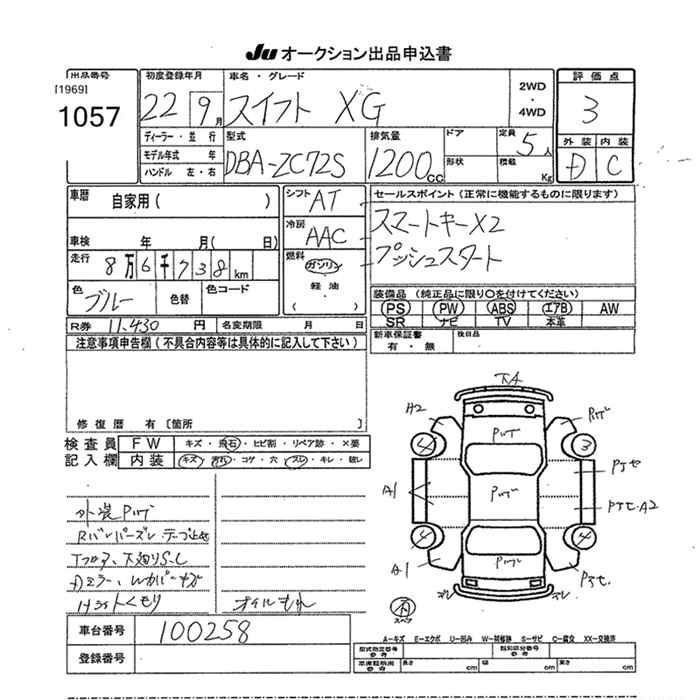 Ju オークション出品申込書
出品番号 [1969] 1057
初度登録年月 22 9月
車名・グレード スイフト XG
2WD・4WD
評価点 3
ディーラー・並行
モデル年式 年
ハンドル 左・右
型式 DBA-ZC72S
排気量 1200cc
ドア
形状
定員 5人
積載 Kg
外装 内装
D C
車歴 自家用( )
車検 年 月( 日)
走行 8万6千738km
色 ブルー 色替 色コード
R券 11,430円 名変期限 月 日
シフト AT
冷房 AAC
燃料 ガソリン
軽油
( )
セールスポイント(正常に機能するものに限ります)
スマートキーX2
プッシュスタート
装備品(純正品に限り○を付けてください)
PS PW ABS エアB AW
SR ナビ TV 本革
新車保証書 有・無
後日品
注意事項申告欄(不具合内容等は具体的に記入して下さい)
修復歴 有〔箇所
検査員記入欄
FW キズ・飛石・ヒビ割・リペア跡・×要
内装 キズ・汚れ・コゲ・穴・スレ・キレ・破レ
外装Pソゲ
オイルもれ
車台番号 100258
登録番号
A2 Pソゲ
Pソゲ
4 3
A1 Pソゲ
4 4
A1 Pソゲ
スペア
A−キズ E−エクボ U−凹み W−補修跡 S−サビ C−腐食 XX−交換済
型式指定番号 参考 類別区分番号 参考
車庫証明用 参考 長さ cm 幅 cm 高さ cm